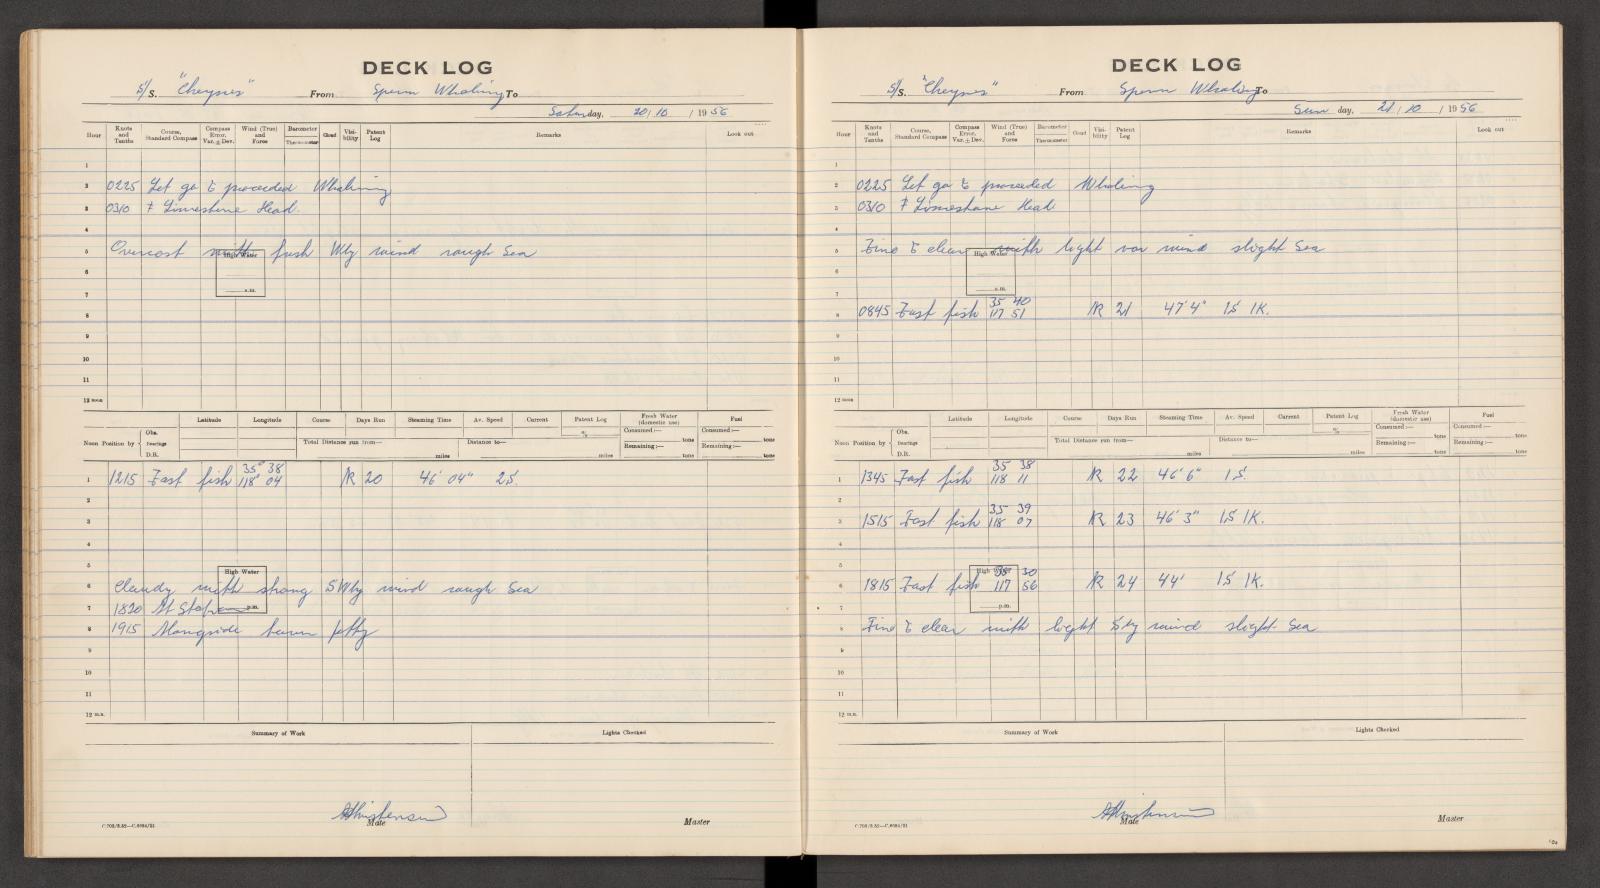 DECK LOG
S/S. "Cheynes" From Sperm Whaling To
Saturday, 20 / 10 / 19 56
Hour Knots and Tenths Course, Standard Compass Compass Error, Var. ± Dev. Wind (True) and Force Barometer Thermometer Cloud Visibility Patent Log Remarks Look out
1
2 0225 Let go & proceeded Whaling
3 0310 Limestone Head.
4
5 Overcast with fresh Wly wind rough Sea
High Water
6
7 a.m.
8
9
10
11
12 noon
Latitude Longitude Course Days Run Steaming Time Av. Speed Current Patent Log Fresh Water (domestic use) Fuel
Noon Position by Obs. Bearings D.R. Total Distance run from— miles Distance to— miles % Consumed:— tons Remaining:— tons Consumed:— Remaining:— tons
1 1215 Fast fish 35° 38 118° 04 N 20 46' 04" 25'
2
3
4
5
High Water
6 Cloudy with strong SWly wind rough Sea
7 1820 At p.m.
8 1915 Alongside town jetty
9
10
11
12 m.n.
Summary of Work Lights Checked
A Christensen
Mate Master
C.702/8.52—C.6694/51
DECK LOG
S/S. "Cheynes" From Sperm Whaling To
Sun day, 21 / 10 / 19 56
Hour Knots and Tenths Course, Standard Compass Compass Error, Var. ± Dev. Wind (True) and Force Barometer Thermometer Cloud Visibility Patent Log Remarks Look out
1
2 0225 Let go & proceeded Whaling
3 0310 Limestone Head
4
5 Fine & clear with light var wind slight Sea
High Water
6
7 a.m.
8 0845 Fast fish 35 40 117 51 N 21 47' 4" 15' 1K.
9
10
11
12 noon
Latitude Longitude Course Days Run Steaming Time Av. Speed Current Patent Log Fresh Water (domestic use) Fuel
Noon Position by Obs. Bearings D.R. Total Distance run from— miles Distance to— miles % Consumed:— tons Remaining:— tons Consumed:— Remaining:— tons
1 1345 Fast fish 35 38 118 11 N 22 46' 6" 15'
2
3 1515 Fast fish 35 39 118 07 N 23 46' 3" 15' 1K.
4
5
High Water
6 1815 Fast fish 35 30 117 56 N 24 44' 15' 1K.
7 p.m.
8 Fine & clear with light Sly wind slight Sea
9
10
11
12 m.n.
Summary of Work Lights Checked
A Christensen
Mate Master
C.702/8.52—C.6694/51